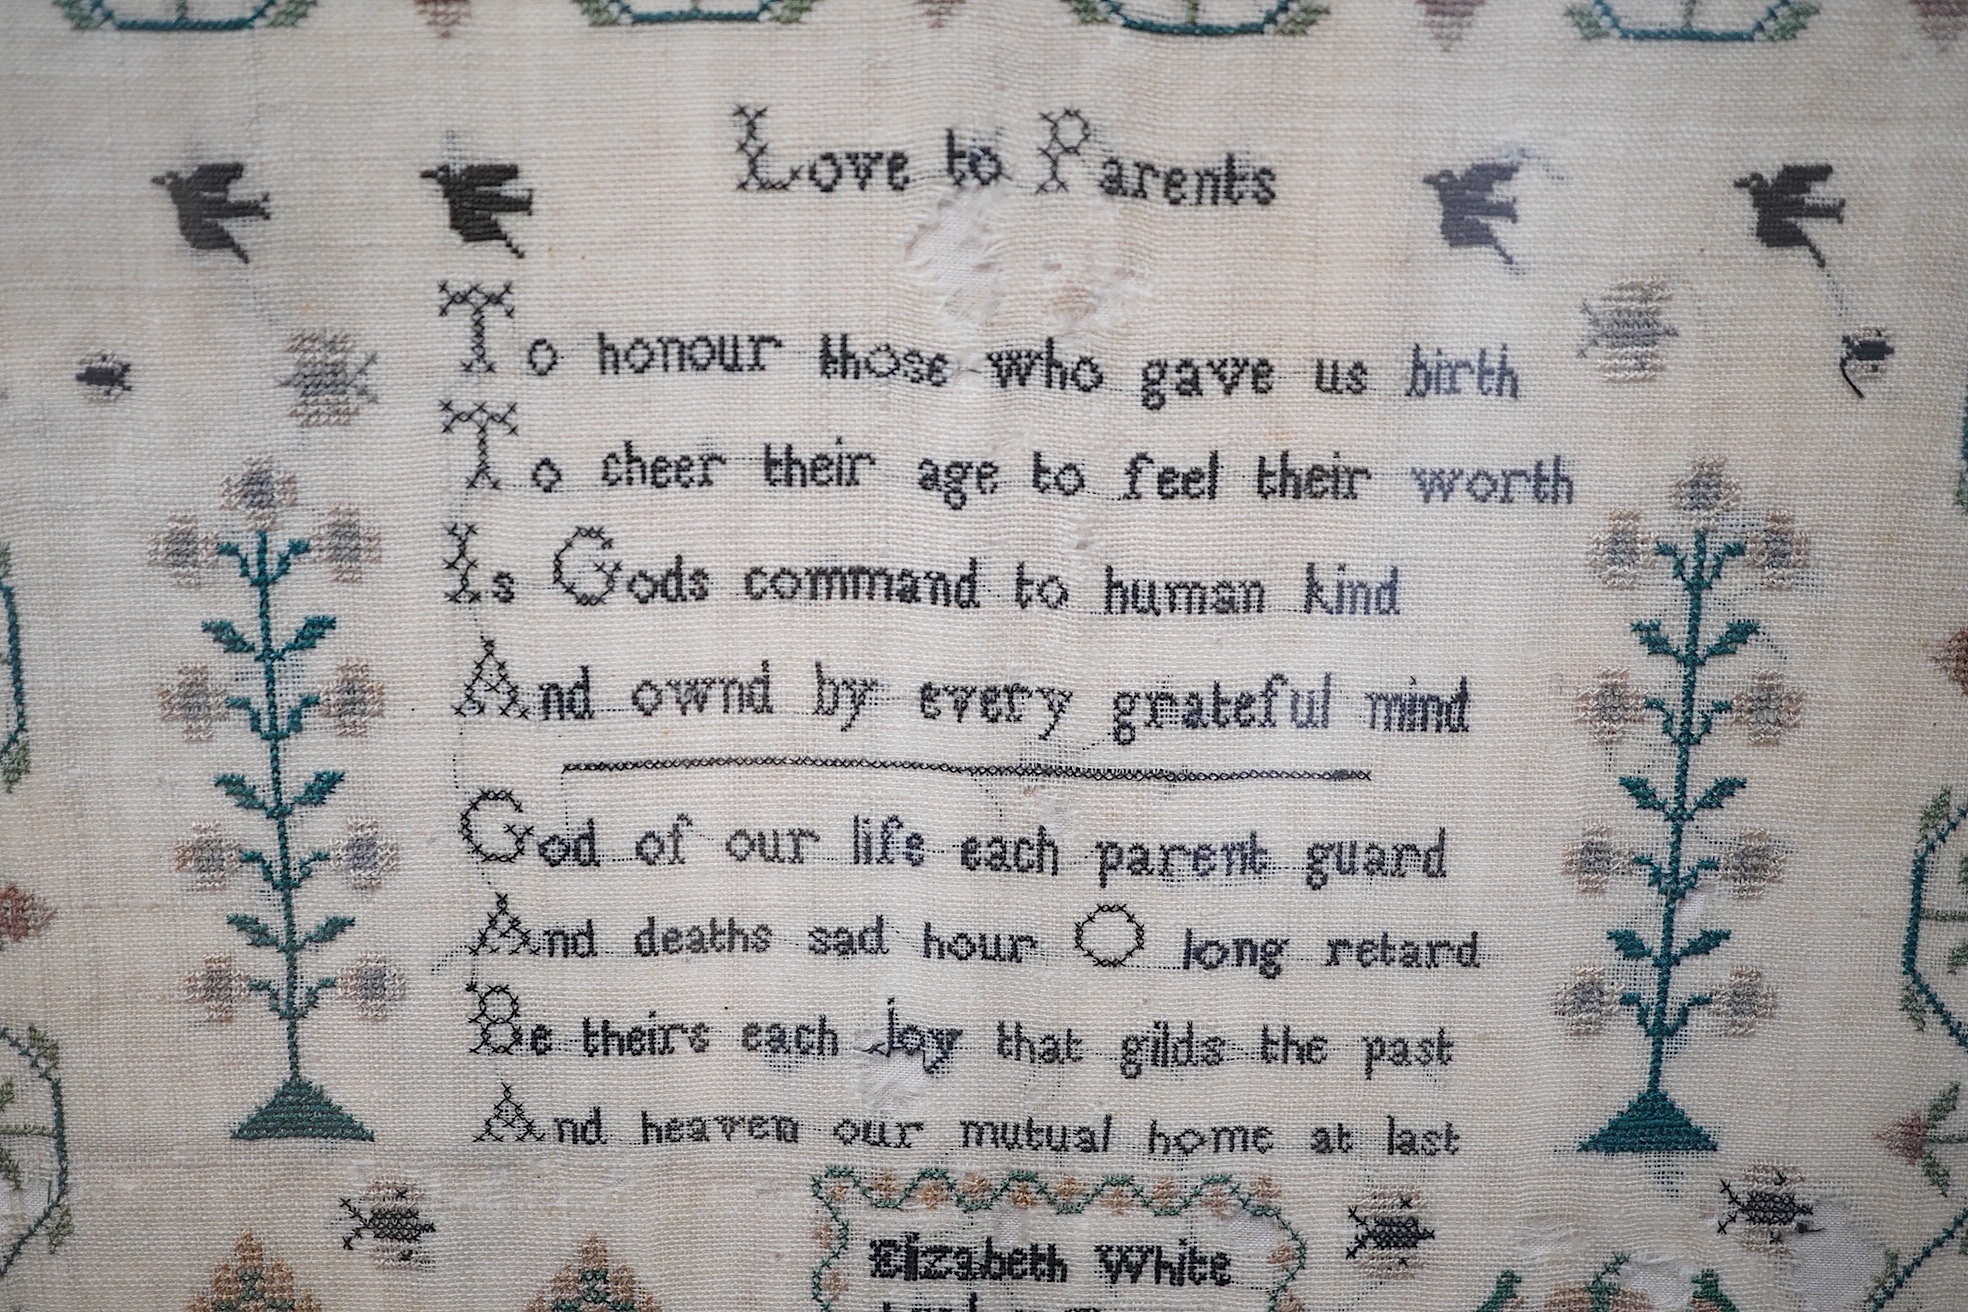 Love to Parents
To honour those who gave us birth
To cheer their age to feel their worth
Is Gods command to human kind
And ownd by every grateful mind
God of our life each parent guard
And deaths sad hour O long retard
Be theirs each joy that gilds the past
And heaven our mutual home at last
Elizabeth White